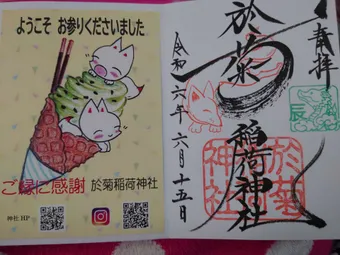 ようこそ お参りくださいました
ご縁に感謝 於菊稲荷神社
神社 HP
奉拝
於菊
稲荷神社
令和六年六月十五日
辰
於菊
神社